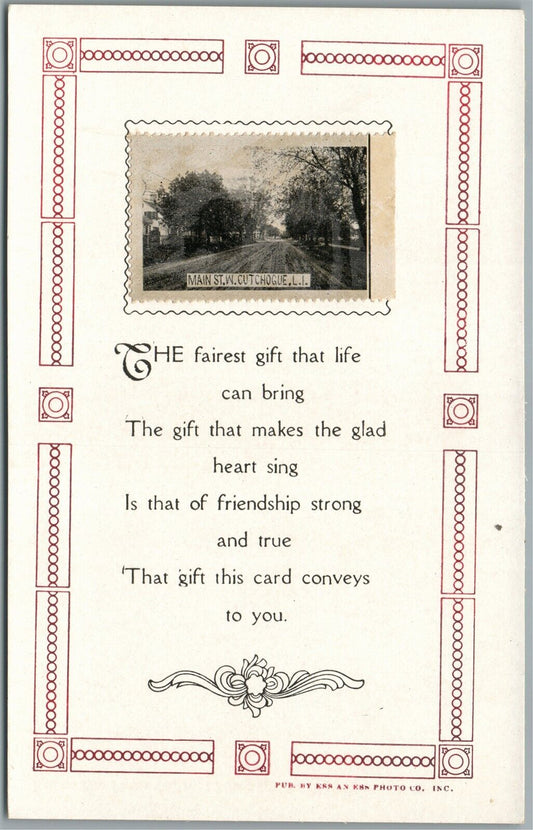 MAIN ST. W. CUTCHOGUE, L.I.
THE fairest gift that life
can bring
The gift that makes the glad
heart sing
Is that of friendship strong
and true
That gift this card conveys
to you.
PUB. BY ESS AN ESS PHOTO CO. INC.